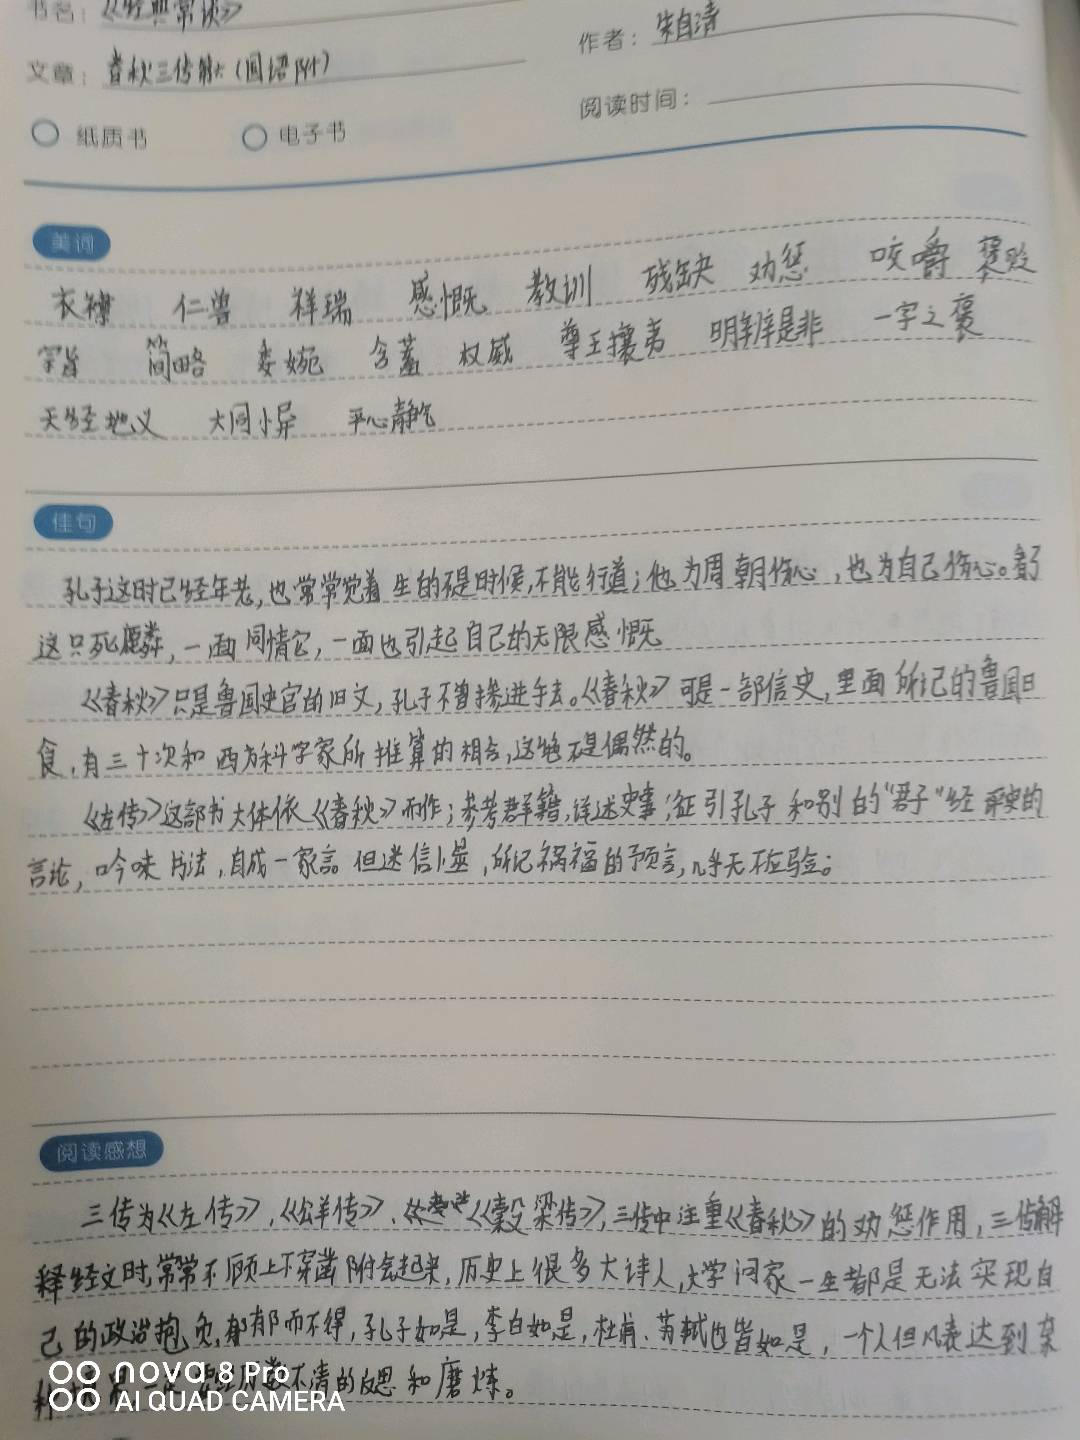 书名：《经典常谈》
作者：朱自清
文章：春秋三传第六（国语附）
阅读时间：
纸质书 电子书
美词
衣襟 仁兽 祥瑞 感慨 教训 残缺 劝惩 咬嚼 褒贬
宗旨 简略 委婉 含蓄 权威 尊王攘夷 明辨是非 一字之褒
天经地义 大同小异 平心静气
佳句
孔子这时已经年老，也常常觉着生的不是时候，不能行道；他为周朝伤心，也为自己伤心。看了
这只死麟，一面同情它，一面也引起自己的无限感慨
《春秋》只是鲁国史官的旧文，孔子不曾掺进手去。《春秋》可是一部信史，里面所记的鲁国日
食，有三十次和西方科学家所推算的相合，这绝不是偶然的。
《左传》这部书大体依《春秋》而作；参考群籍，详述史事；征引孔子和别的“君子”经 的
言论，吟味书法，自成一家言。但迷信卜筮，所记祸福的预言，几乎无不应验；
阅读感想
三传为《左传》，《公羊传》、《穀梁传》，三传中注重《春秋》的劝惩作用，三传解
释经文时，常常不顾上下穿凿附会起来，历史上很多大诗人，大学问家一生都是无法实现自
己的政治抱负，郁郁而不得，孔子如是，李白如是，杜甫、苏轼也皆如是，一个人但凡表达到某
种 一定 经历数不清的反思和磨炼。
nova 8 Pro
AI QUAD CAMERA